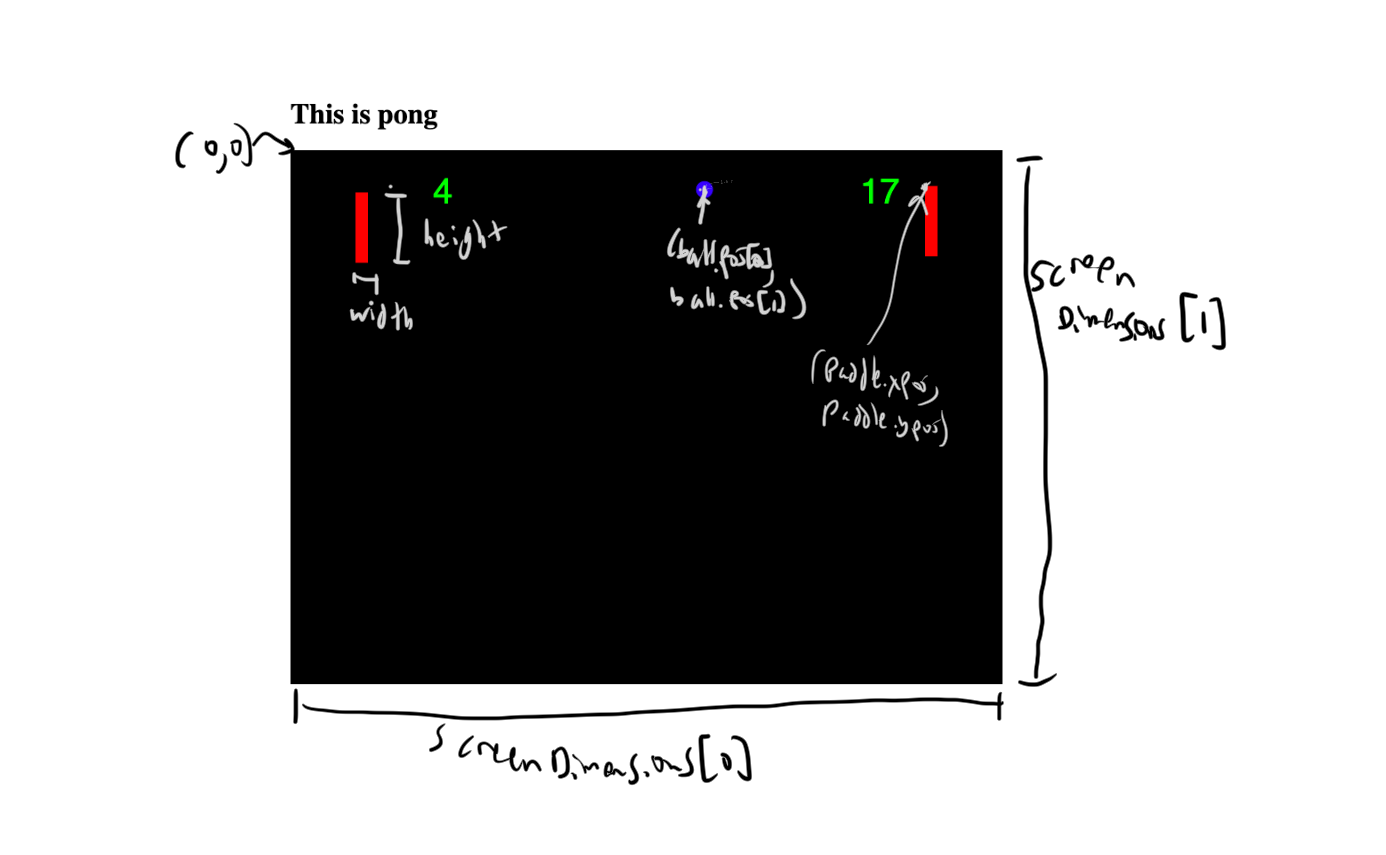 This is pong
(0,0)
4
17
height
width
(ball.pos[0],
ball.pos[1])
(Paddle.xpos,
Paddle.ypos)
Screen
Dimensions [1]
ScreenDimensions[0]